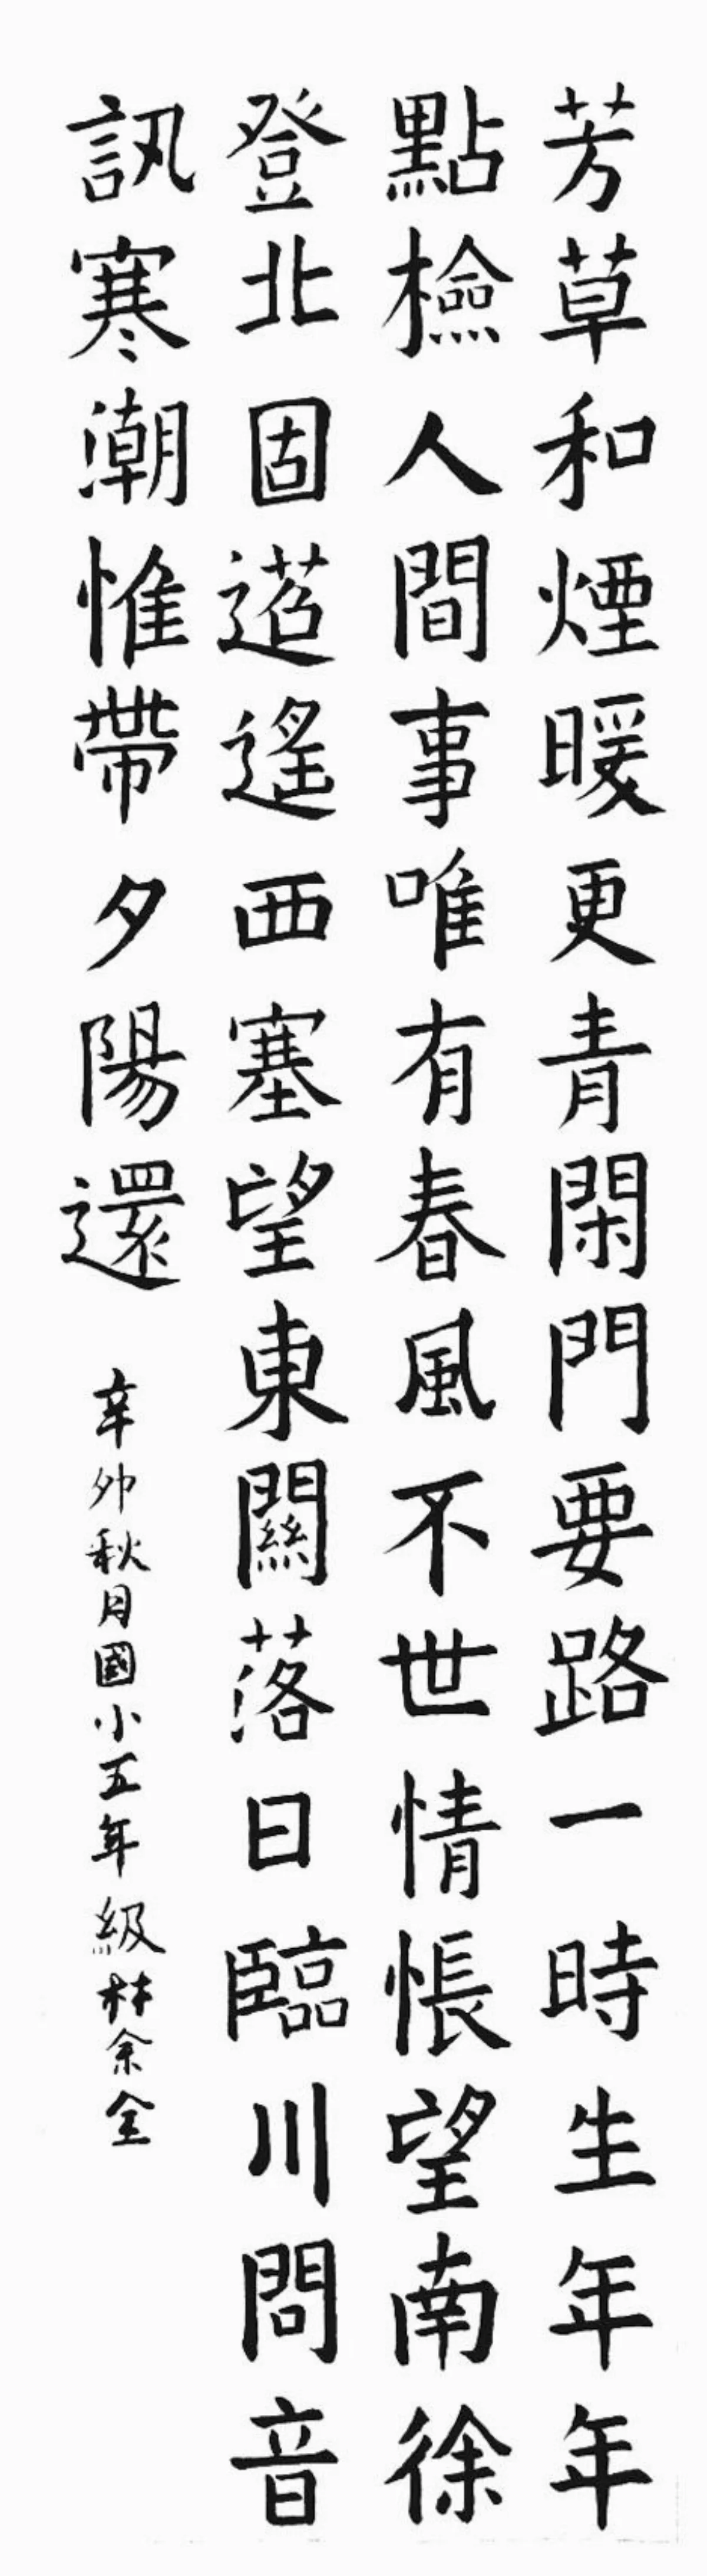 芳草和煙暖更青閑門要路一時生年年
點檢人間事唯有春風不世情悵望南徐
登北固迢遙西塞望東關落日臨川問音
訊寒潮惟帶夕陽還
辛卯秋月國小五年級林余全